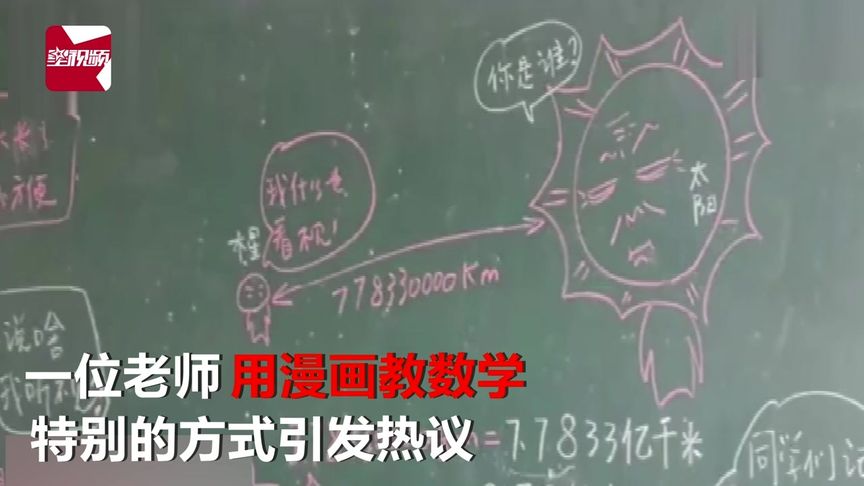 星视频
你是谁?
太
阳
我什么也
看不见!
木星
778330000Km
方便
说啥
我听不
一位老师用漫画教数学
特别的方式引发热议
=7.7833亿千米
同学们记